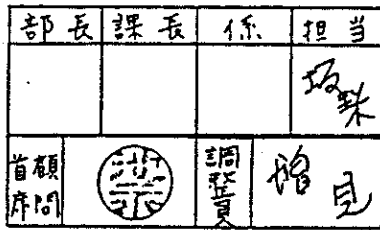 部長 課長 係 担当
首席 顧問 調整員 増見